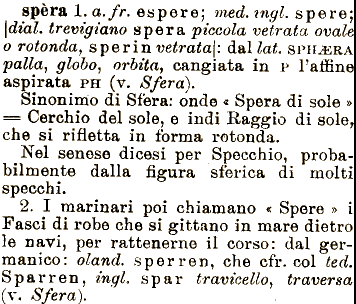 spèra 1. a. fr. espere; med. ingl. spere;
|dial. trevigiano spera piccola vetrata ovale
o rotonda, sperin vetrata|: dal lat. SPHÆRA
palla, globo, orbita, cangiata in P l'affine
aspirata PH (v. Sfera).
Sinonimo di Sfera: onde « Spera di sole »
= Cerchio del sole, e indi Raggio di sole,
che si rifletta in forma rotonda.
Nel senese dicesi per Specchio, proba-
bilmente dalla figura sferica di molti
specchi.
2. I marinari poi chiamano « Spere » i
Fasci di robe che si gittano in mare dietro
le navi, per rattenerne il corso: dal ger-
manico: oland. sperren, che cfr. col ted.
Sparren, ingl. spar travicello, traversa
(v. Sfera).